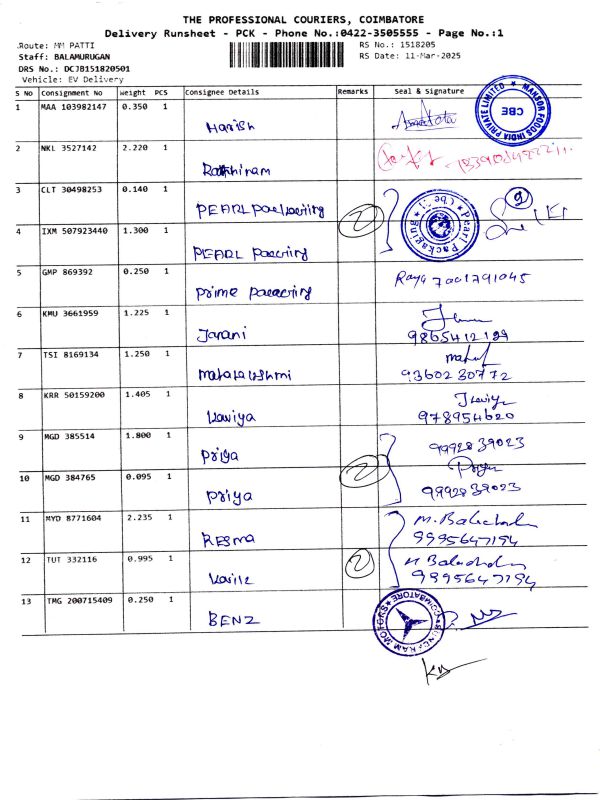 THE PROFESSIONAL COURIERS, COIMBATORE
Delivery Runsheet - PCK - Phone No.:0422-3505555 - Page No.:1
Route: MM PATTI
RS No.: 1518205
Staff: BALAMURUGAN
RS Date: 11-Mar-2025
DRS No.: DCJB151820501
Vehicle: EV Delivery
S No Consignment No Weight PCS Consignee Details Remarks Seal & Signature
1 MAA 103982147 0.350 1 Harish
MANSOR FOODS INDIA PRIVATE LIMITED CBE
2 NKL 3527142 2.220 1
3 CLT 30498253 0.140 1 PEARL
Pearl Packaging Cbe
4 IXM 507923440 1.300 1 PEARL
2
5 GMP 869392 0.250 1 Prime
7001791045
6 KMU 3661959 1.225 1 Janani
7 TSI 8169134 1.250 1 Mahalakshmi
9360230772
8 KRR 50159200 1.405 1 Kaviya
978954620
9 MGD 385514 1.800 1 Priya
9992839023
10 MGD 384765 0.095 1 Priya
2
Priya
9992839023
11 MYD 8771604 2.235 1 RESMA
9995647194
12 TUT 332116 0.995 1
2
9995647194
13 TMG 200715409 0.250 1 BENZ
SUNDARAM MOTORS COIMBATORE